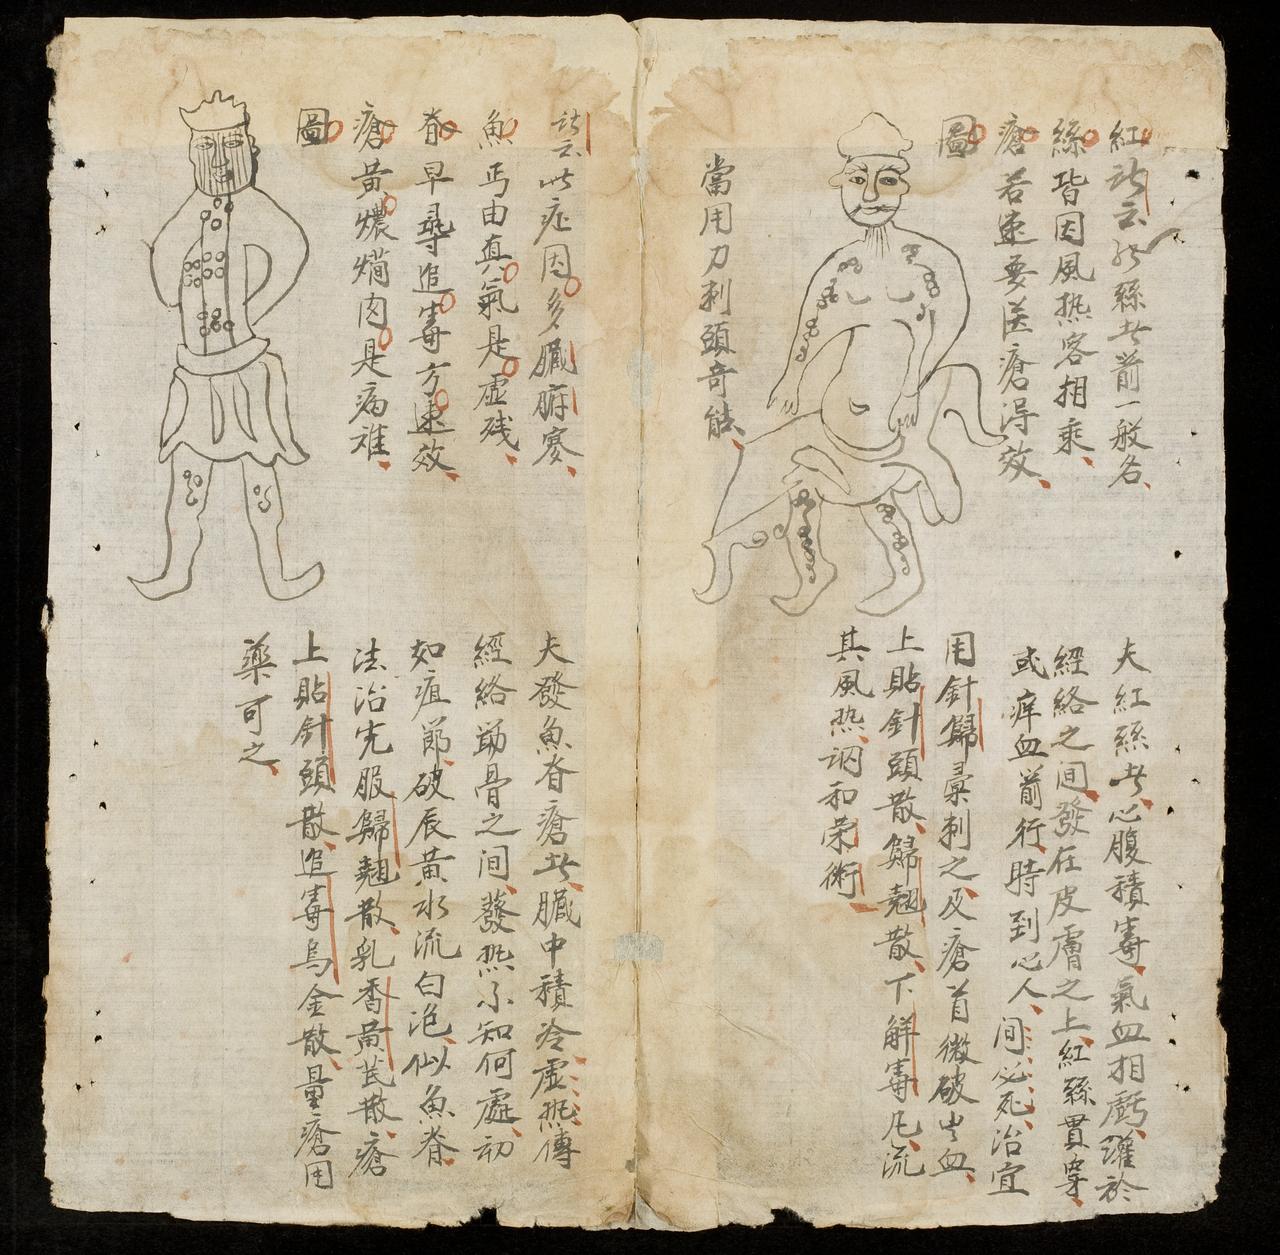 紅訣云 絲者前一般名
絲皆因風热客相乘
瘡若速要医瘡淂效
圖
當用刀刺頭奇能
夫紅絲者心腹積毒氣血相虧 於
經絡之间發在皮膚之上紅絲貫穿
或痒血前行時到心人间必死治宜
用針歸 刺之及瘡首微破出血
上貼針頭散歸翹散下解毒凡流
其風热调和荣術
訣云此症因多臟腑寒
魚 由真氣是虚残
脊早尋追毒方速效
瘡黄 肉是病难
圖
夫發魚脊瘡者臟中積冷虚热傳
經絡 骨之间發热不知何處初
如疽節破辰黄水流白泡似魚脊
法治先服歸翹散乳香黄芪散瘡
上貼針頭散追毒烏金散量瘡用
藥可之